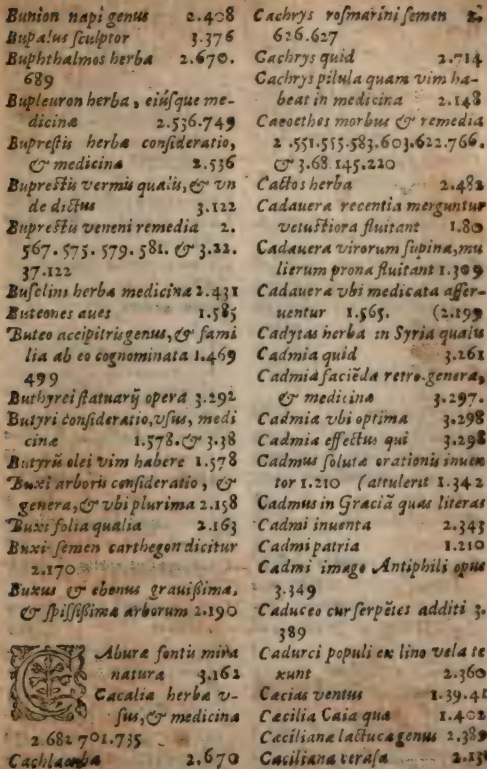 Bunion napi genus 2.408
Bupalus sculptor 3.376
Buphthalmos herba 2.670.
689
Bupleuron herba, eiúsque me-
dicinæ 2.536.749
Buprestis herbæ consideratio,
& medicina 2.536
Buprestis vermis qualis, & vn
de dictus 3.122
Buprestis veneni remedia 2.
567. 575. 579. 581. & 3.22.
37.122
Buselini herbæ medicina 2.431
Buteones aues 1.585
Buteo accipitris genus, & fami
lia ab eo cognominata 1.469
499
Buthyrei statuarij opera 3.292
Butyri consideratio, vsus, medi
cinæ 1.578. & 3.38
Butyrū olei vim habere 1.578
Buxi arboris consideratio, &
genera, & vbi plurima 2.158
Buxi folia qualia 2.163
Buxi semen carthegon dicitur
2.170
Buxus & ebenus grauißima,
& spißißima arborum 2.190
Caburæ fontis mira
natura 3.162
Cacalia herba v-
sus, & medicina
2.682 701.735
2.670
Cachrys rosmarini semen 2.
626.627
Cachrys quid 2.714
Cachrys pilula quam vim ha-
beat in medicina 2.148
Cacoethes morbus & remedia
2.551.555.583.603.622.766.
& 3.68.145.220
Cactos herba 2.482
Cadauera recentia merguntur
vetustiora fluitant 1.80
Cadauera virorum supina, mu
lierum prona fluitant 1.309
Cadauera vbi medicata asser-
uentur 1.565. (2.199
Cadytas herba in Syria qualis
Cadmia quid 3.261
Cadmia faciēda retro. genera,
& medicina 3.297.
Cadmia vbi optima 3.298
Cadmia effectus qui 3.298
Cadmus solutæ orationis inuen
tor 1.210 (attulerit 1.342
Cadmus in Græciā quas literas
Cadmi inuenta 2.343
Cadmi patria 1.210
Cadmi imago Antiphili opus
3.349
Caduceo cur serpētes additi 3.
389
Cadurci populi ex lino vela te
xunt 2.360
Cæcias ventus 1.39.41
Cæcilia Caia quæ 1.402
Cæciliana lactucæ genus 2.389
Cæciliana verasa